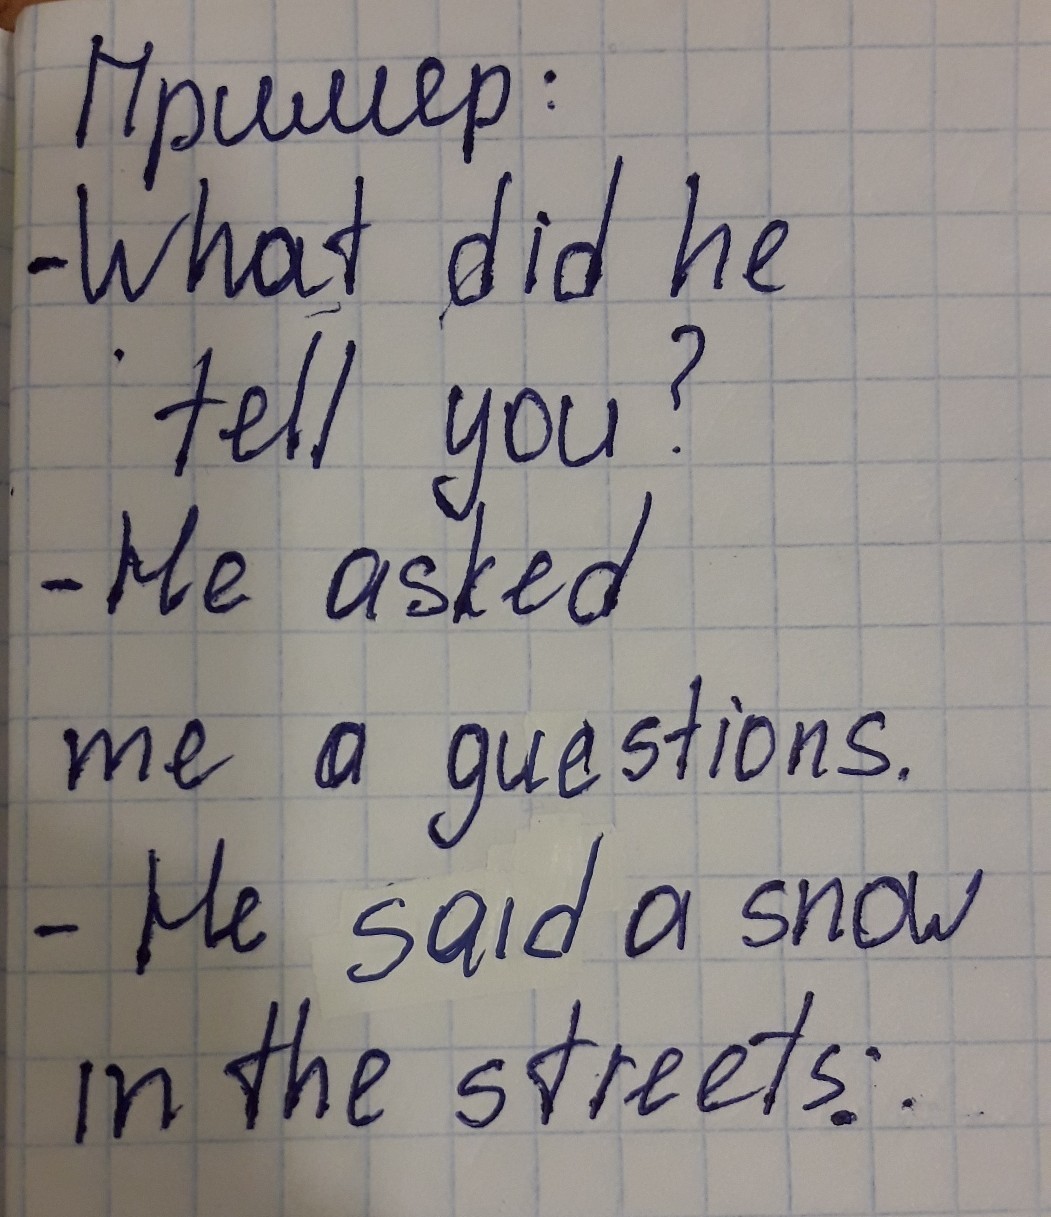 Пример:
-What did he
tell you?
-He asked
me a questions.
- He said a snow
in the streets.